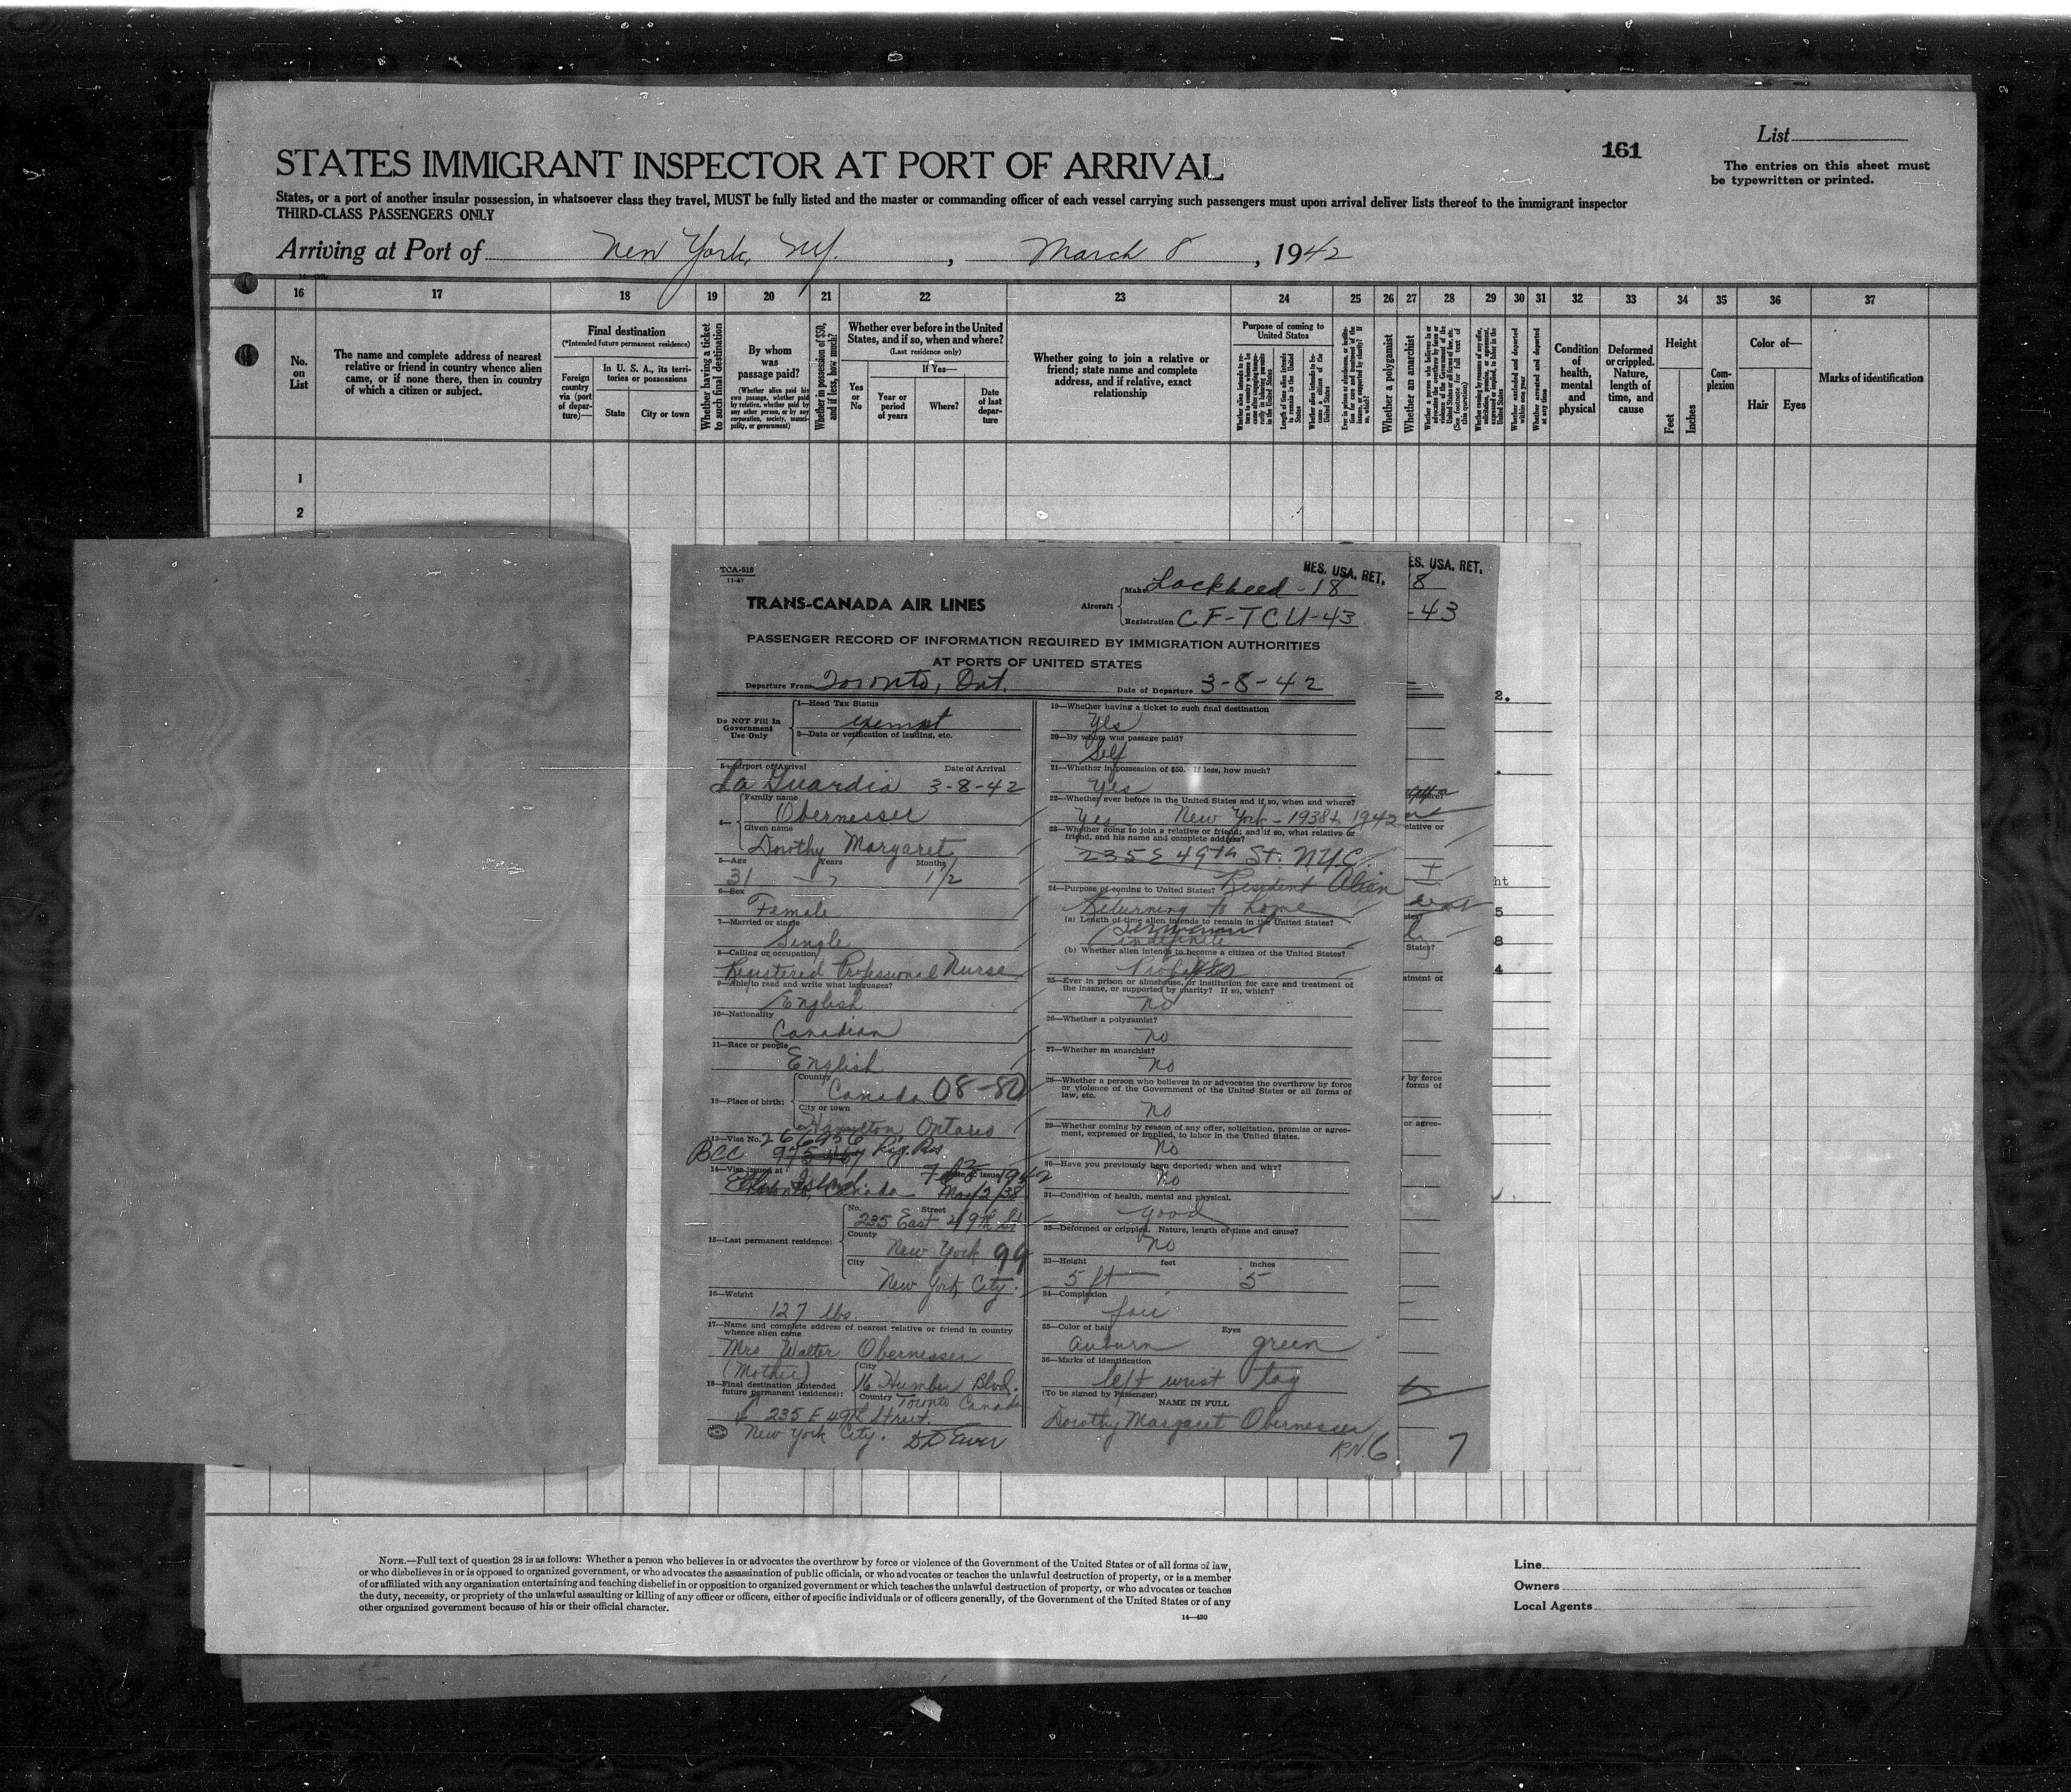 161
List
STATES IMMIGRANT INSPECTOR AT PORT OF ARRIVAL
The entries on this sheet must
be typewritten or printed.
States, or a port of another insular possession, in whatsoever class they travel, MUST be fully listed and the master or commanding officer of each vessel carrying such passengers must upon arrival deliver lists thereof to the immigrant inspector
THIRD-CLASS PASSENGERS ONLY
Arriving at Port of New York, NY. , March 8, 1942
16 17 18 19 20 21 22 23 24 25 26 27 28 29 30 31 32 33 34 35 36 37
No.
on
List
The name and complete address of nearest
relative or friend in country whence alien
came, or if none there, then in country
of which a citizen or subject.
Final destination
(*Intended future permanent residence)
Foreign
country
via (port
of depar-
ture)—
In U. S. A., its terri-
tories or possessions
State
City or town
Whether having a ticket
to such final destination
By whom
was
passage paid?
(Whether alien paid his
own passage, whether paid
by relative, whether paid by
any other person, or by any
corporation, society, munici-
pality, or government)
Whether in possession of $50,
and if less, how much?
Whether ever before in the United
States, and if so, when and where?
(Last residence only)
Yes
or
No
If Yes—
Year or
period
of years
Where?
Date
of last
depar-
ture
Whether going to join a relative or
friend; state name and complete
address, and if relative, exact
relationship
Purpose of coming to
United States
Whether a polygamist
Whether an anarchist
Condition
of
health,
mental
and
physical
Deformed
or crippled.
Nature,
length of
time, and
cause
Height
Feet
Inches
Com-
plexion
Color of—
Hair
Eyes
Marks of identification
1
2
TCA-518
11-41
RES. USA. RET.
TRANS-CANADA AIR LINES
Aircraft
Make Lockheed-18
Registration CF-TCU-43
PASSENGER RECORD OF INFORMATION REQUIRED BY IMMIGRATION AUTHORITIES
AT PORTS OF UNITED STATES
Departure From Toronto, Ont. Date of Departure 3-8-42
Do NOT Fill In
Government
Use Only
1—Head Tax Status
exempt
2—Data or verification of landing, etc.
3—Airport of Arrival Date of Arrival
La Guardia 3-8-42
4—
Family name
Obernesser
Given name
Dorothy Margaret
5—Age Years Months
31 1/2
6—Sex
Female
7—Married or single
Single
8—Calling or occupation
Registered Professional Nurse
9—Able to read and write what languages?
English
10—Nationality
Canadian
11—Race or people
English
12—Place of birth:
Country
Canada 08-80
City or town
Hamilton Ontario
13—Visa No.
BCC
14—Visa issued at Date of issue
Toronto, Canada
15—Last permanent residence:
No. Street
235 East 49th St
County
New York 99
City
New York City.
16—Weight
127 lbs.
17—Name and complete address of nearest relative or friend in country
whence alien came
Mrs Walter Obernesser
(Mother)
City
16 Humber Blvd.
Country Toronto Canada
18—Final destination (Intended
future permanent residence):
235 E 49th Street.
New York City.
19—Whether having a ticket to such final destination
Yes
20—By whom was passage paid?
Self
21—Whether in possession of $50. If less, how much?
Yes
22—Whether ever before in the United States and if so, when and where?
Yes New York - 1938 1942
23—Whether going to join a relative or friend; and if so, what relative or
friend, and his name and complete address?
235 E 49th St. NYC.
24—Purpose of coming to United States? Resident Alien
Returning to home
(a) Length of time alien intends to remain in the United States?
indefinite
(b) Whether alien intends to become a citizen of the United States?
25—Ever in prison or almshouse, or institution for care and treatment of
the insane, or supported by charity? If so, which?
no
26—Whether a polygamist?
no
27—Whether an anarchist?
no
28—Whether a person who believes in or advocates the overthrow by force
or violence of the Government of the United States or all forms of
law, etc.
no
29—Whether coming by reason of any offer, solicitation, promise or agree-
ment, expressed or implied, to labor in the United States.
No
30—Have you previously been deported; when and why?
No
31—Condition of health, mental and physical.
good
32—Deformed or crippled. Nature, length of time and cause?
no
33—Height feet inches
5 ft 5
34—Complexion
fair
35—Color of hair Eyes
auburn green
36—Marks of identification
left wrist
(To be signed by Passenger)
NAME IN FULL
Dorothy Margaret Obernesser
R.N. 6
ES. USA. RET.
18
-43
7
NOTE.—Full text of question 28 is as follows: Whether a person who believes in or advocates the overthrow by force or violence of the Government of the United States or of all forms of law,
or who disbelieves in or is opposed to organized government, or who advocates the assassination of public officials, or who advocates or teaches the unlawful destruction of property, or is a member
of or affiliated with any organization entertaining and teaching disbelief in or opposition to organized government or which teaches the unlawful destruction of property, or who advocates or teaches
the duty, necessity, or propriety of the unlawful assaulting or killing of any officer or officers, either of specific individuals or of officers generally, of the Government of the United States or of any
other organized government because of his or their official character.
14—430
Line
Owners
Local Agents